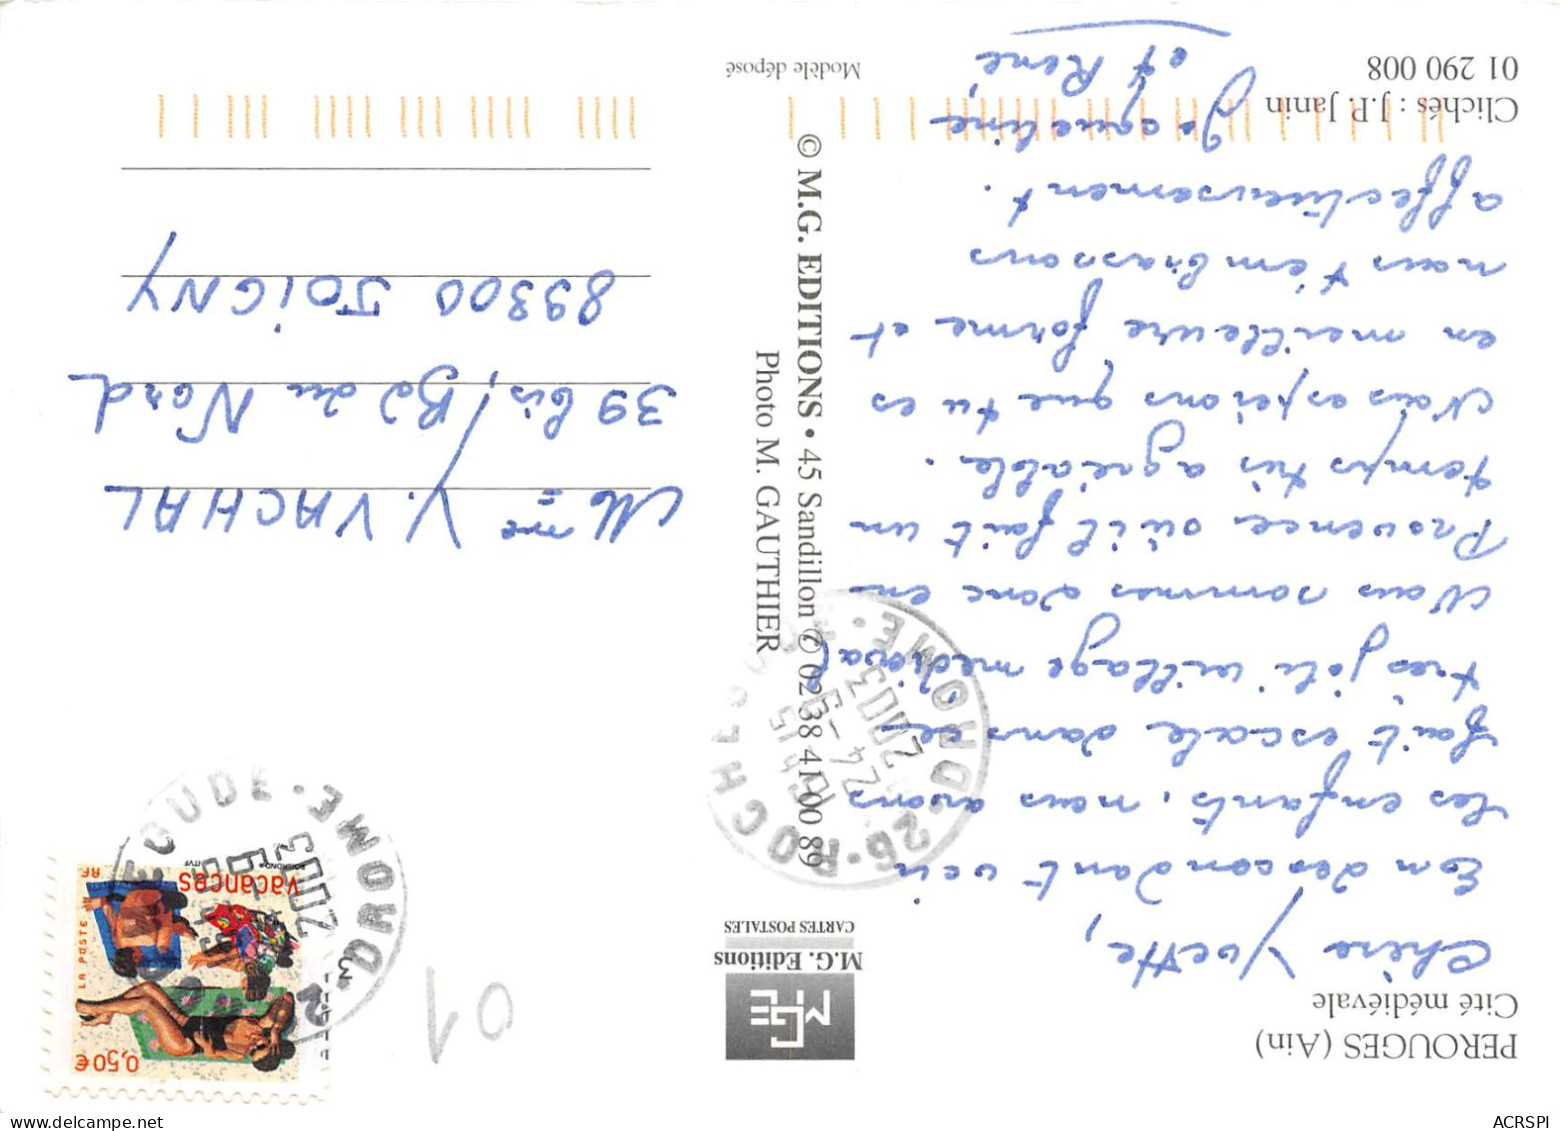 PEROUGES (Ain)
Cité médiévale
Chère Yvette,
En descendant voir
les enfants, nous avons
fait escale dans ce
très joli village médiéval
Nous sommes donc en
Provence où il fait un
temps très agréable.
Nous espérons que tu es
en meilleure forme et
nous t'embrassons
affectueusement.
Jacqueline
et René
Clichés : J.P. Janin
01 290 008
M.G. Editions
CARTES POSTALES
© M.G. EDITIONS • 45 Sandillon ✆ 02 38 41 00 89
Photo M. GAUTHIER
Modèle déposé
26 • ROCHEGUDE • DROME •
15H15
24 -9
2003
0,50€
LA POSTE
RF
vacances
01
Mme Y. VACHAL
39 bis, Bd du Nord
89300 JOIGNY
ACRSPI